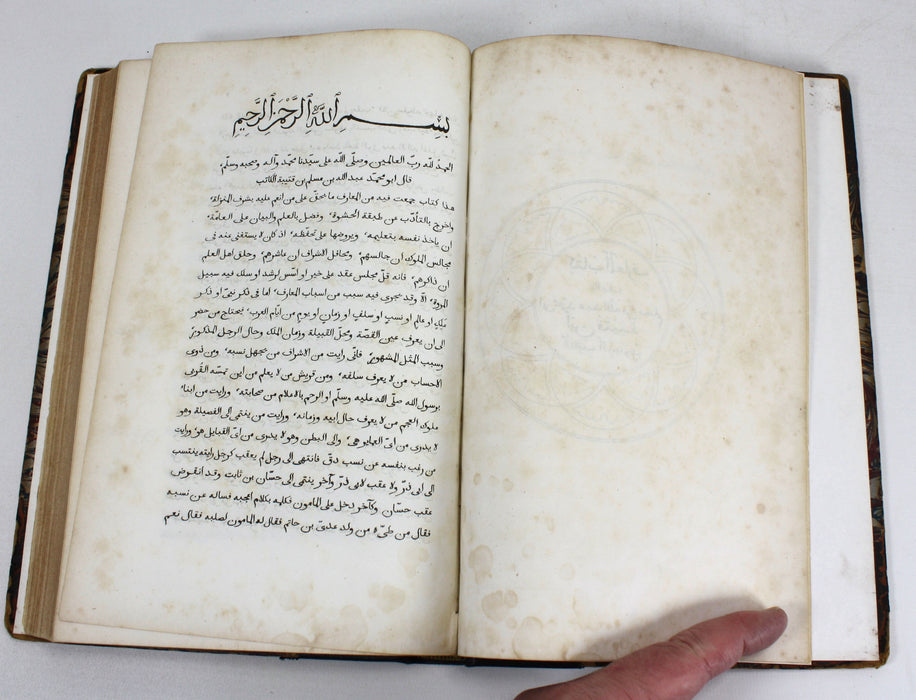 بِسْمِ ٱللَّهِ ٱلرَّحْمَنِ ٱلرَّحِيمِ
الحمد للّه ربّ العالمين وصلّى اللّه على سيّدنا محمّد وآله وصحبه وسلّم
قال ابو محمّد عبد الله بن مسلم بن قتيبة الكاتب
هذا كتاب جمعت فيه من المعارف ما يحقّ على من انعم عليه بشرف المنزلة،
واخرج بالتأدّب عن طبقة الحشوة، وفضل بالعلم والبيان على العامّة،
ان ياخذ نفسه بتعليمه، ويروضها على تحفّظه، اذ كان لا يستغنى عنه فى
مجالس الملوك ان جالسهم، ومحافل الاشراف ان عاشرهم، وحلق اهل العلم
ان ذاكرهم، فانه قلّ مجلس عقد على خير او اسّس لرشد او سلك فيه سبيل
المروة، الّا وقد يجرى فيه سبب من اسباب المعارف، اما فى ذكر نبىّ او ذكر
ملك او عالم او نسب او سلف او زمان او يوم من ايّام العرب، فيحتاج من حضر
الى ان يعرف عين القصّة ومحلّ القبيلة وزمان الملك وحال الرجل المذكور
وسبب المثل المشهور، فانّى رايت من الاشراف من يجهل نسبه، ومن ذوى
الاحساب من لا يعرف سلفه، ومن قريش من لا يعلم من اين تمسّه القربى
برسول الله صلّى الله عليه وسلّم او الرحم بالاعلام من صحابته، ورايت من ابناء
ملوك العجم من لا يعرف حال ابيه وزمانه، ورايت من ينتمى الى الفصيلة وهو
لا يدرى من اىّ العماير هى، والى البطن وهو لا يدرى من اىّ القبايل هو، ورايت
من رغب بنفسه عن نسب دقّ فانتهى الى رجل لم يعقب كرجل رايته ينتسب
الى ابى ذرّ ولا عقب لابى ذرّ وآخر ينتمى الى حسّان بن ثابت وقد انقرض
عقب حسّان وكآخر دخل على المامون فكلمه بكلام اعجبه فساله عن نسبه
فقال من طىّء من ولد عدىّ بن حاتم فقال له المامون لصلبه فقال نعم